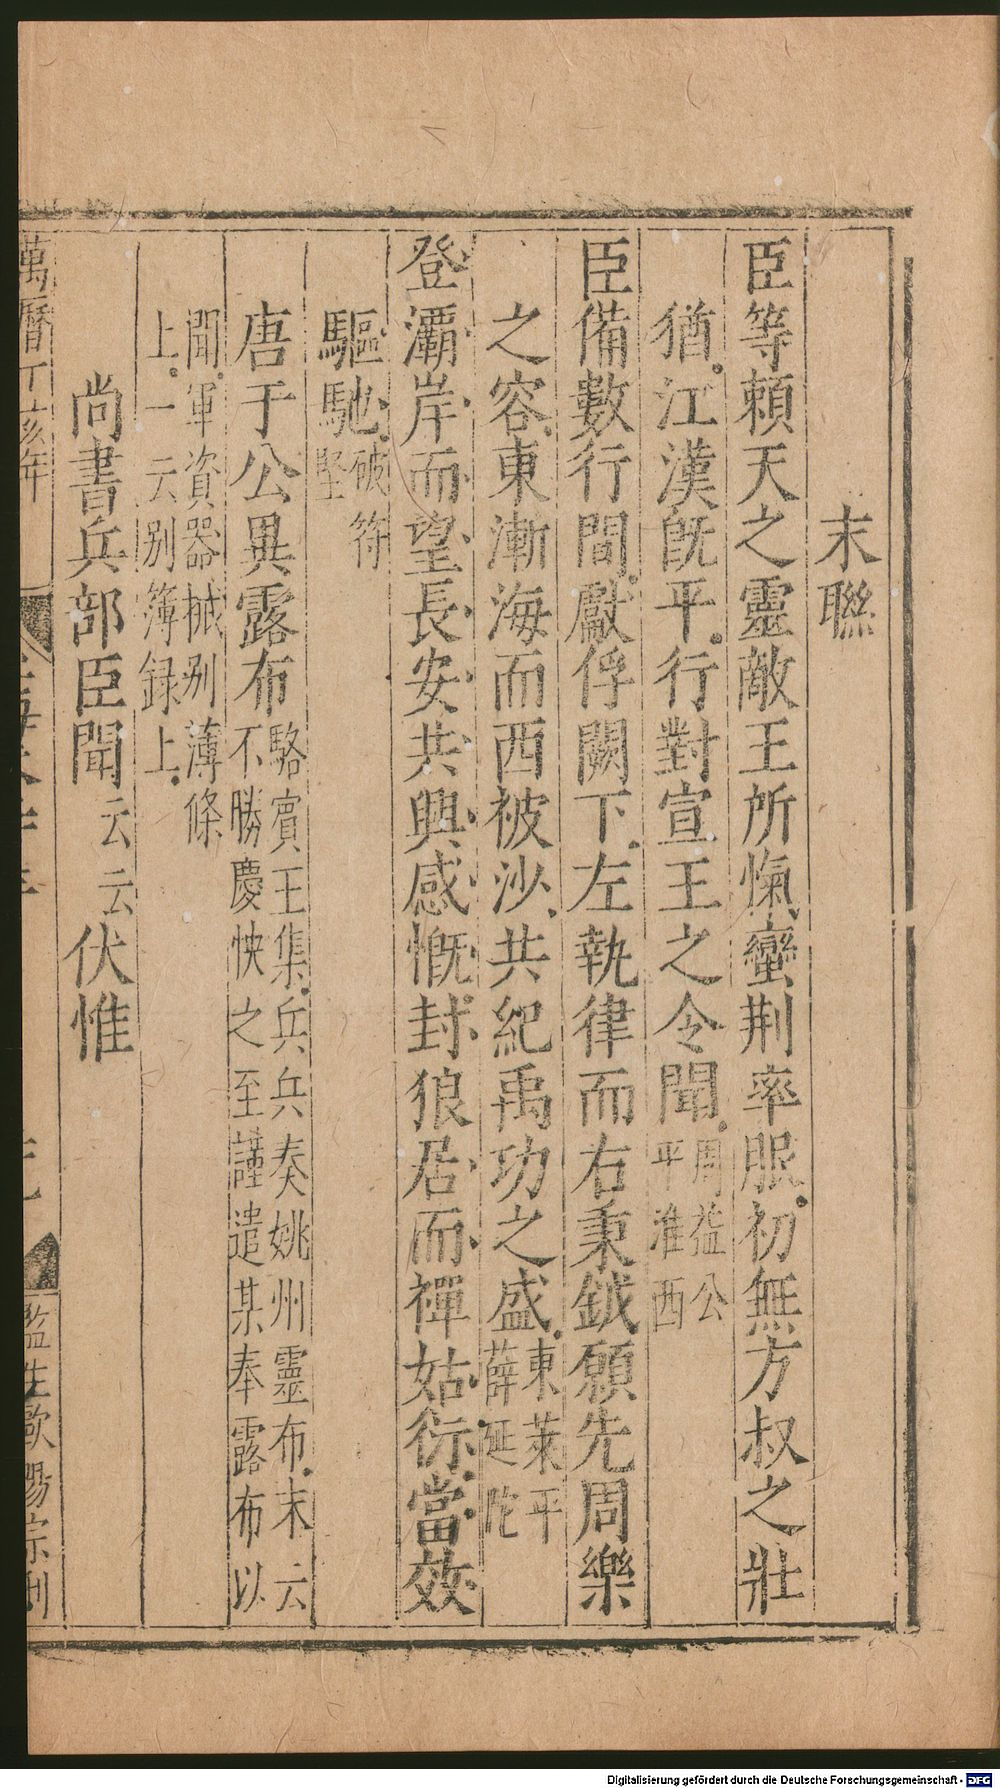 末聯
臣等賴天之靈敵王所愾蠻荆率服初無方叔之壯
猶江漢旣平行對宣王之令聞周益公平淮西
臣備數行間獻俘闕下左執律而右秉鉞願先周樂
之容東漸海而西被沙共紀禹功之盛東萊平薛延陀
登灞岸而望長安共興感慨封狼居而禪姑衍當效
驅馳破符堅
唐于公異露布駱賓王集兵兵奏姚州靈布末云不勝慶快之至謹遣某奉露布以
聞軍資器械别薄條上一云别簿録上
尚書兵部臣聞云云伏惟
萬曆丁亥年
監生歐陽宗刊
Digitalisierung gefördert durch die Deutsche Forschungsgemeinschaft - DFG